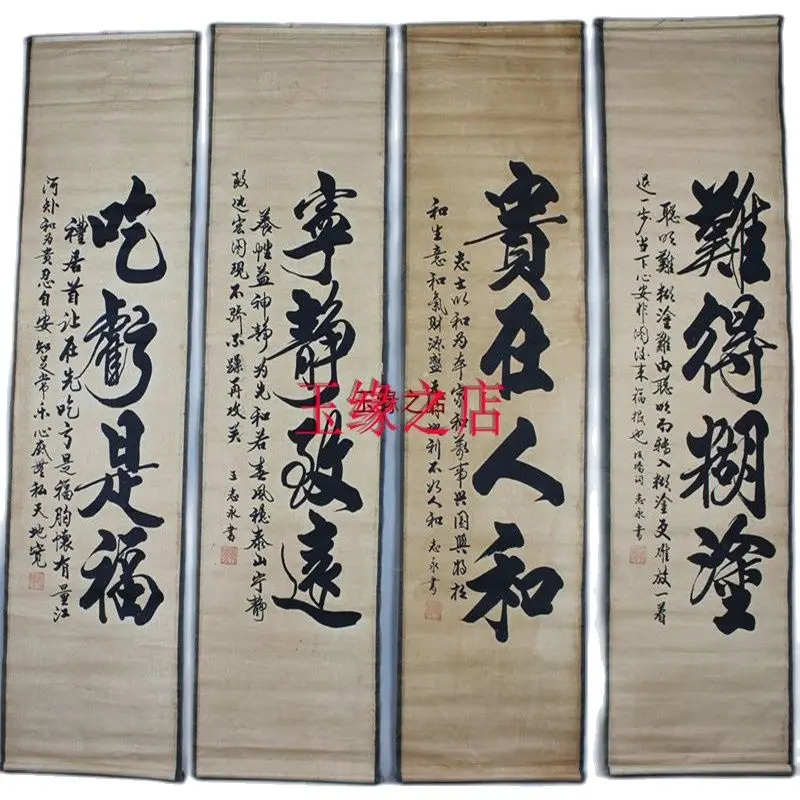 難得糊塗
聪明難糊塗難由聪明而轉入糊塗更难放一着
退一步当下心安非图后来福报也 板桥词 志永書
貴在人和
志士以和为本家和萬事兴国興将相
和生意和氣財源盛天時地利不如人和 志永書
寧靜致遠
養性益神静为先和若春風穩泰山宁静
致远宏图現不骄不躁再攻关 王志永書
吃虧是福
禮居首让在先吃亏是福胸懷有量江
河 和为贵忍自安知足常乐心底無私天地宽
玉缘之店
玉缘之店